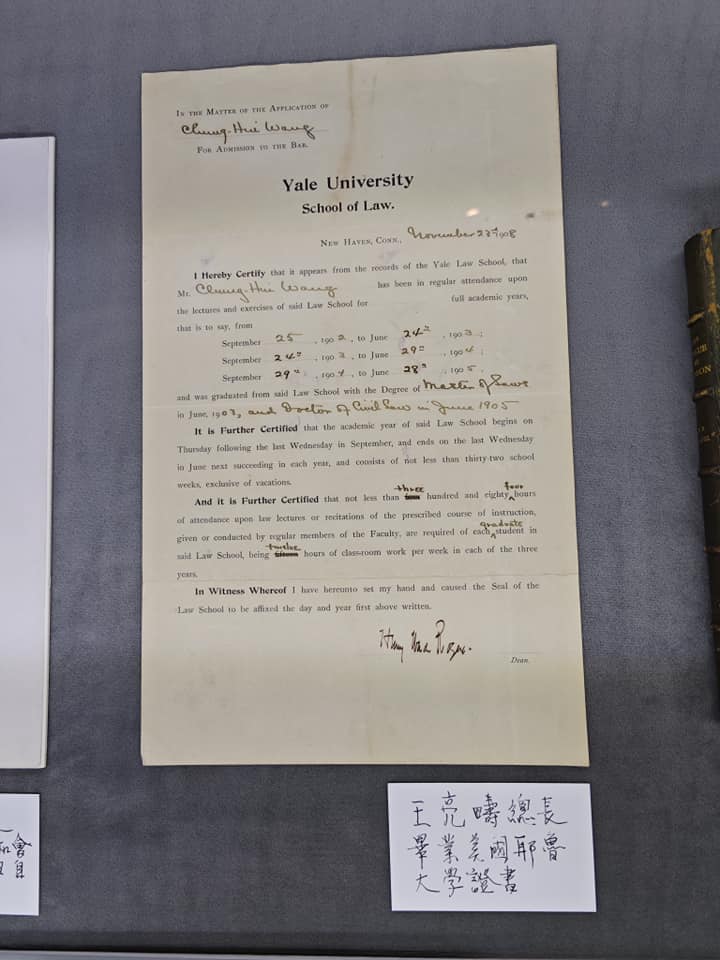 IN THE MATTER OF THE APPLICATION OF
Chung-Hui Wang
FOR ADMISSION TO THE BAR.
Yale University
School of Law.
NEW HAVEN, CONN., November 23d 1908
I Hereby Certify that it appears from the records of the Yale Law School, that
Mr. Chung-Hui Wang has been in regular attendance upon
the lectures and exercises of said Law School for full academic years,
that is to say, from
September 25, 1902, to June 24th, 1903;
September 24th, 1903, to June 29th, 1904;
September 29th, 1904, to June 28th, 1905,
and was graduated from said Law School with the Degree of Master of Laws
in June, 1903, and Doctor of Civil Law in June 1905
It is Further Certified that the academic year of said Law School begins on
Thursday following the last Wednesday in September, and ends on the last Wednesday
in June next succeeding in each year, and consists of not less than thirty-two school
weeks, exclusive of vacations.
And it is Further Certified that not less than three hundred and eighty four hours
of attendance upon law lectures or recitations of the prescribed course of instruction,
given or conducted by regular members of the Faculty, are required of each graduate student in
said Law School, being twelve hours of class-room work per week in each of the three
years.
In Witness Whereof I have hereunto set my hand and caused the Seal of the
Law School to be affixed the day and year first above written.
Henry Wade Rogers.
Dean.
王亮疇總長
畢業美國耶魯
大學證書
會
自